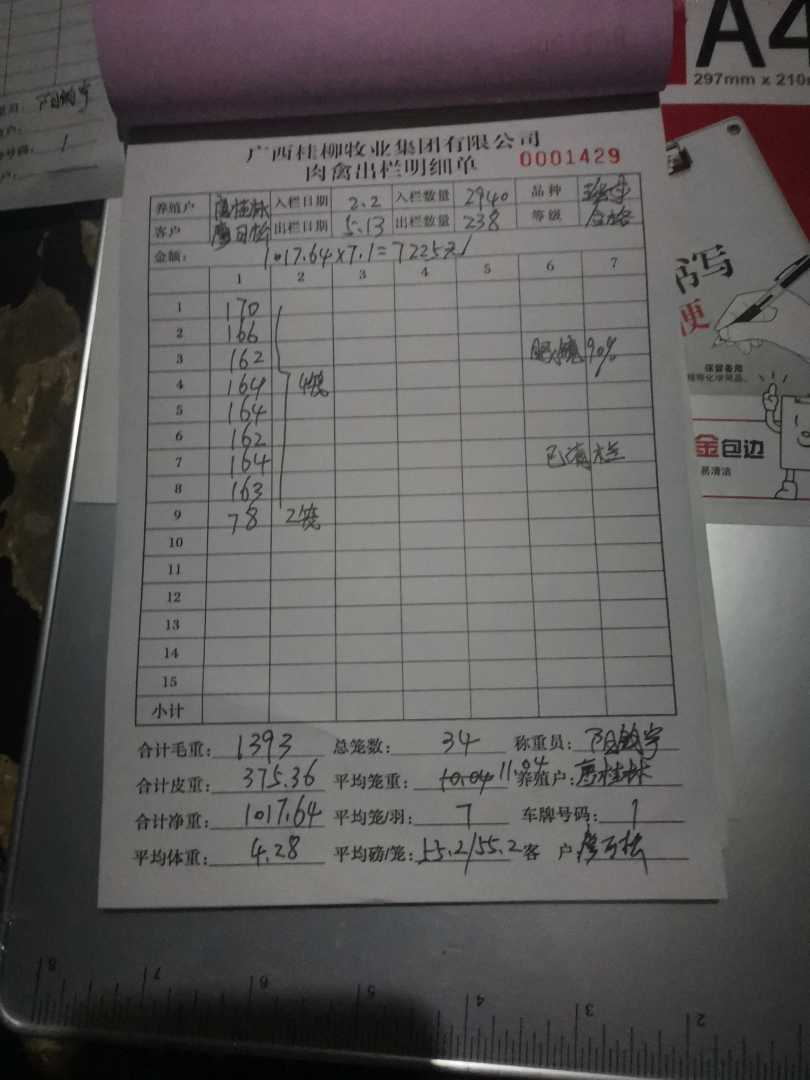 A4
297mm x 210mm
广西桂柳牧业集团有限公司
肉禽出栏明细单 0001429
养殖户 入栏日期 2.2 入栏数量 2940 品种
客户 出栏日期 5.13 出栏数量 238 等级 合格
金额： 1017.64×7.1=7225元
1 2 3 4 5 6 7
1 170
2 166
3 162 90%
4 164 4笼
5 164
6 162
7 164 已清栏
8 163
9 78 2笼
10
11
12
13
14
15
小计
合计毛重：1393 总笼数：34 称重员：
合计皮重：375.36 平均笼重：11.04 养殖户：
合计净重：1017.64 平均笼/羽：7 车牌号码：1
平均体重：4.28 平均磅/笼：55.2/55.2 客 户
书写
便
保留备用
金包边
易清洁
8 7 6 5 4 3 2